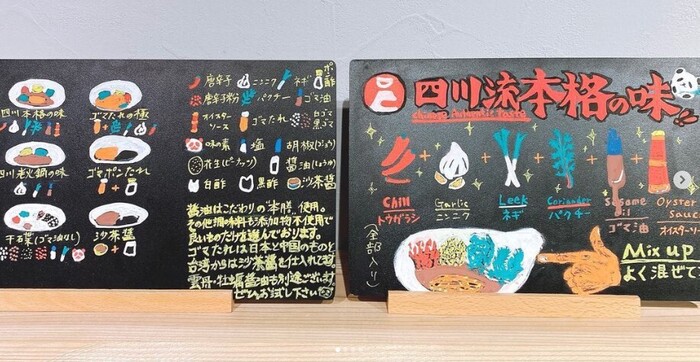 四川本格の味
ゴマだれの極
四川老火鍋の味
ゴマポンだれ
干碟(ゴマ油なし)
沙茶醤
唐辛子
ニンニク
ネギ
ポン酢
唐辛子粉
パクチー
ゴマ油
オイスターソース
ゴマだれ
白ゴマ
黒ゴマ
味の素
塩
胡椒(こしょう)
花生(ピーナッツ)
醤油(しょうゆ)
白酢
黒酢
沙茶醤
醤油はこだわりの「本膳」使用。
その他調味料も添加物不使用で
良いものだけを選んでおります。
ゴマだれは日本と中国のものと
台湾からは沙茶醤を仕入れて
雲丹・牡蠣醤油も別途ございます
ぜひお試し下さい
四川流本格の味!!
Chili
トウガラシ
Garlic
ニンニク
Leek
ネギ
Coriander
パクチー
Sesame
oil
ゴマ油
Oyster
Sauce
オイスターソー
(全部入り)
Mix up
よく混ぜて